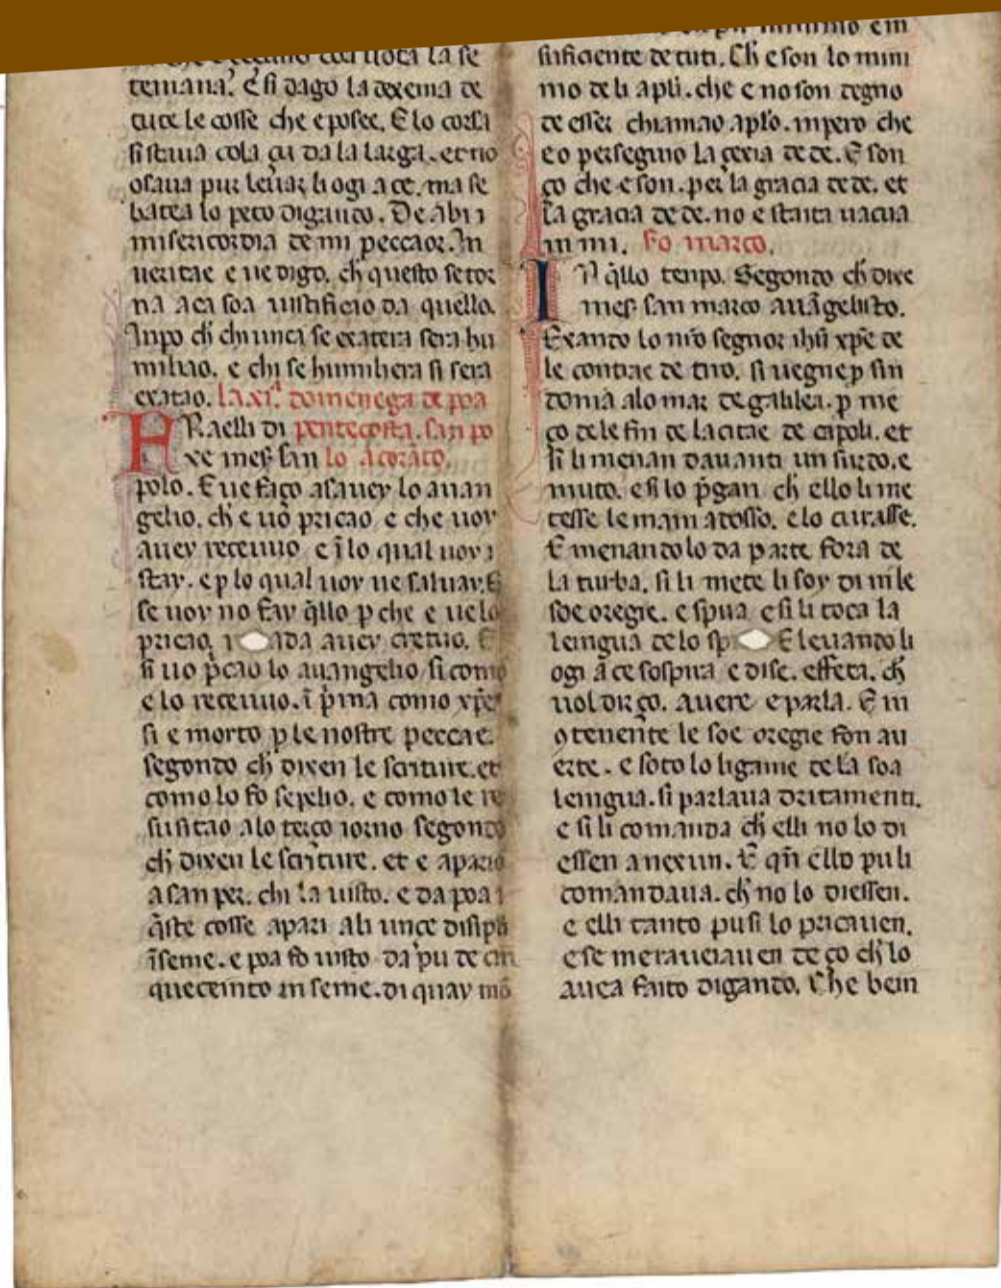 temana. E si dago la dexema de
tute le cosse che e posee. E lo corsa
si staua cola cu da la larga. et no
osaua pur leuar li ogi a ce. ma se
batea lo peto digando. De abi
misericordia de mi peccaor. In
ueritae e ue digo. ch questo se tor
na a ca soa iustificio da quello.
Inpo ch chiunca se exatera sera hu
miliao. e chi se humiliera si sera
exatao. la xi. domenega de poa
FRaelli di pentecosta. san po
xe mes san lo acorato.
polo. E ue faço asauey lo auan
gelio. ch e uo pricao e che uoy
auey receuuo e i lo qual uoy
stay. e p lo qual uoy ue saluay. E
se uoy no fay qllo p che e ue lo
pricao. ada auey cretuo. E
si uo pcao lo auangelio si como
e lo receuuo. i pma como xpe
si e morto p le nostre peccae.
segondo ch dixen le scriture. et
como lo fo sepelio. e como le re
susitao alo terço iorno segondo
ch dixen le scriture. et e apario
a san per. chi la uisto. e da poa
qste cosse apari ali unçe disipli
iseme. e poa fo uisto da pu de cin
quecento in seme. di quay mo
suficiente de tuti. Ch e son lo mini
mo de li apli. che e no son degno
de esser chiamao aplo. inpero che
e o perseguio la gexia de de. E son
ço che e son. per la gracia de de. et
la gracia de de. no e staita uacua
in mi. So marco.
IN qllo tenpo. Segondo ch dixe
mes san marco auagelisto.
Exando lo nro segnor ihu xpe de
le contrae de tiro. si uegne p sin
donia alo mar de galilea. p me
ço de le fin de la citae de capoli. et
si li menan dauanti un surdo. e
muto. e si lo pgan ch ello li me
tesse le main adosso. e lo curasse.
E menandolo da parte fora de
la turba. si li mete li soy di in le
soe oregie. e spua e si li toca la
lengua de lo sp E leuando li
ogi a ce sospira e dise. effeta. ch
uol dir ço. auere e parla. E in
otenente le soe oregie fon au
erte. e soto lo ligame de la soa
lengua. si parlaua dritamenti.
e si li comanda ch elli no lo di
essen a nexun. E qn ello pu li
comandaua. ch no lo diessen.
e elli tanto pu si lo pricauen.
e se merauciauen de ço ch lo
auea faito digando. Che bem